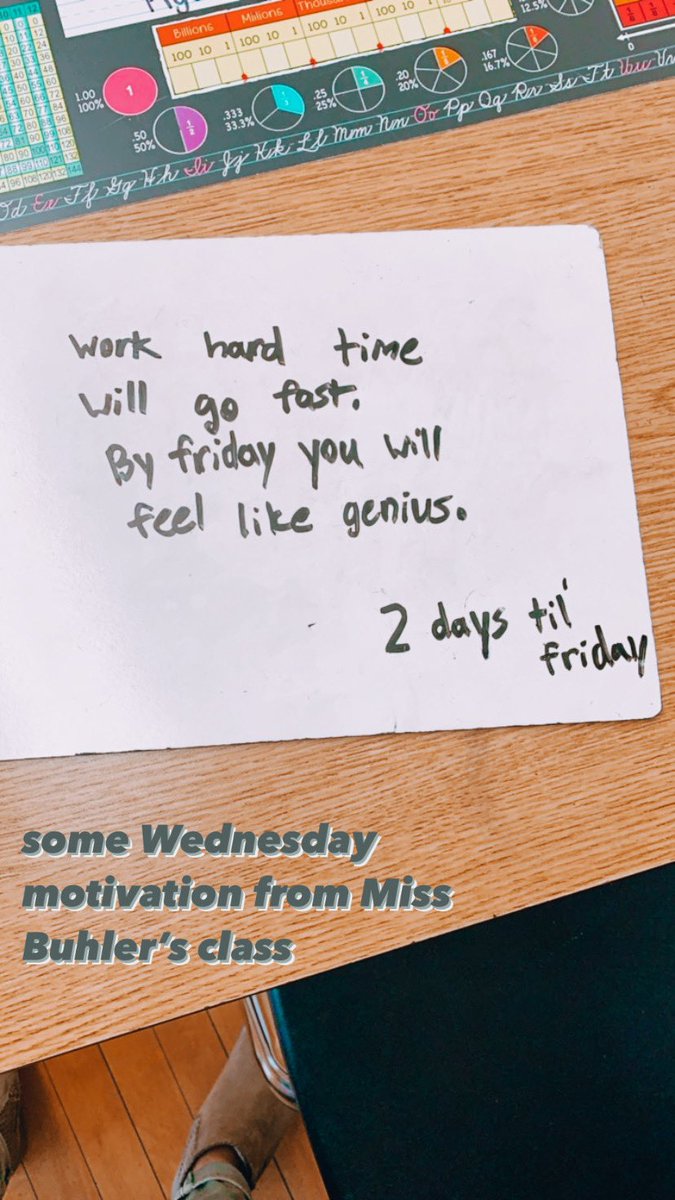 Billions Millions Thous
100 10 1 100 10 1 100 10 1
1.00
100%
1
.50
50%
1/2
.333
33.3%
1/3
.25
25%
1/4
.20
20%
1/5
.167
16.7%
1/6
12.5%
0
Ee Ff Gg Hh Ii Jj Kk Ll Mm Nn Oo Pp Qq Rr Ss Tt Uu
work hard time
will go fast.
By friday you will
feel like genius.
2 days til'
friday
some Wednesday
motivation from Miss
Buhler's class